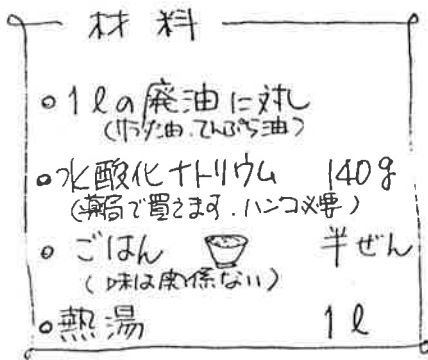 材料
○1ℓの廃油に対し
(サラダ油.てんぷら油)
○水酸化ナトリウム 140g
(薬局で買えます.ハンコ必要)
○ごはん 半ぜん
(味は関係ない)
○熱湯 1ℓ